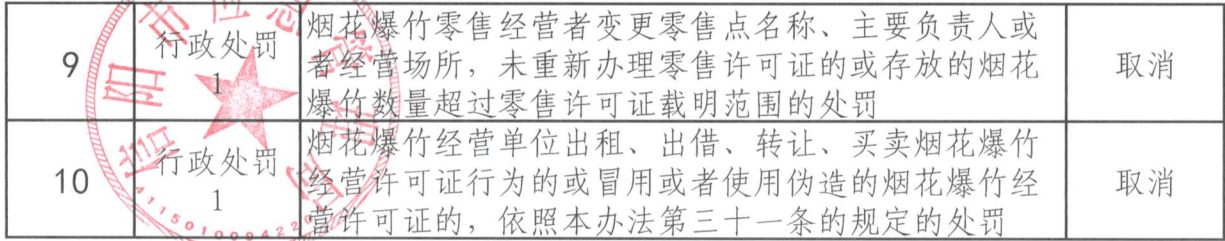 9
行政处罚
1
烟花爆竹零售经营者变更零售点名称、主要负责人或
者经营场所，未重新办理零售许可证的或存放的烟花
爆竹数量超过零售许可证载明范围的处罚
取消
10
行政处罚
1
烟花爆竹经营单位出租、出借、转让、买卖烟花爆竹
经营许可证行为的或冒用或者使用伪造的烟花爆竹经
营许可证的，依照本办法第三十一条的规定的处罚
取消
信阳市应急管理局